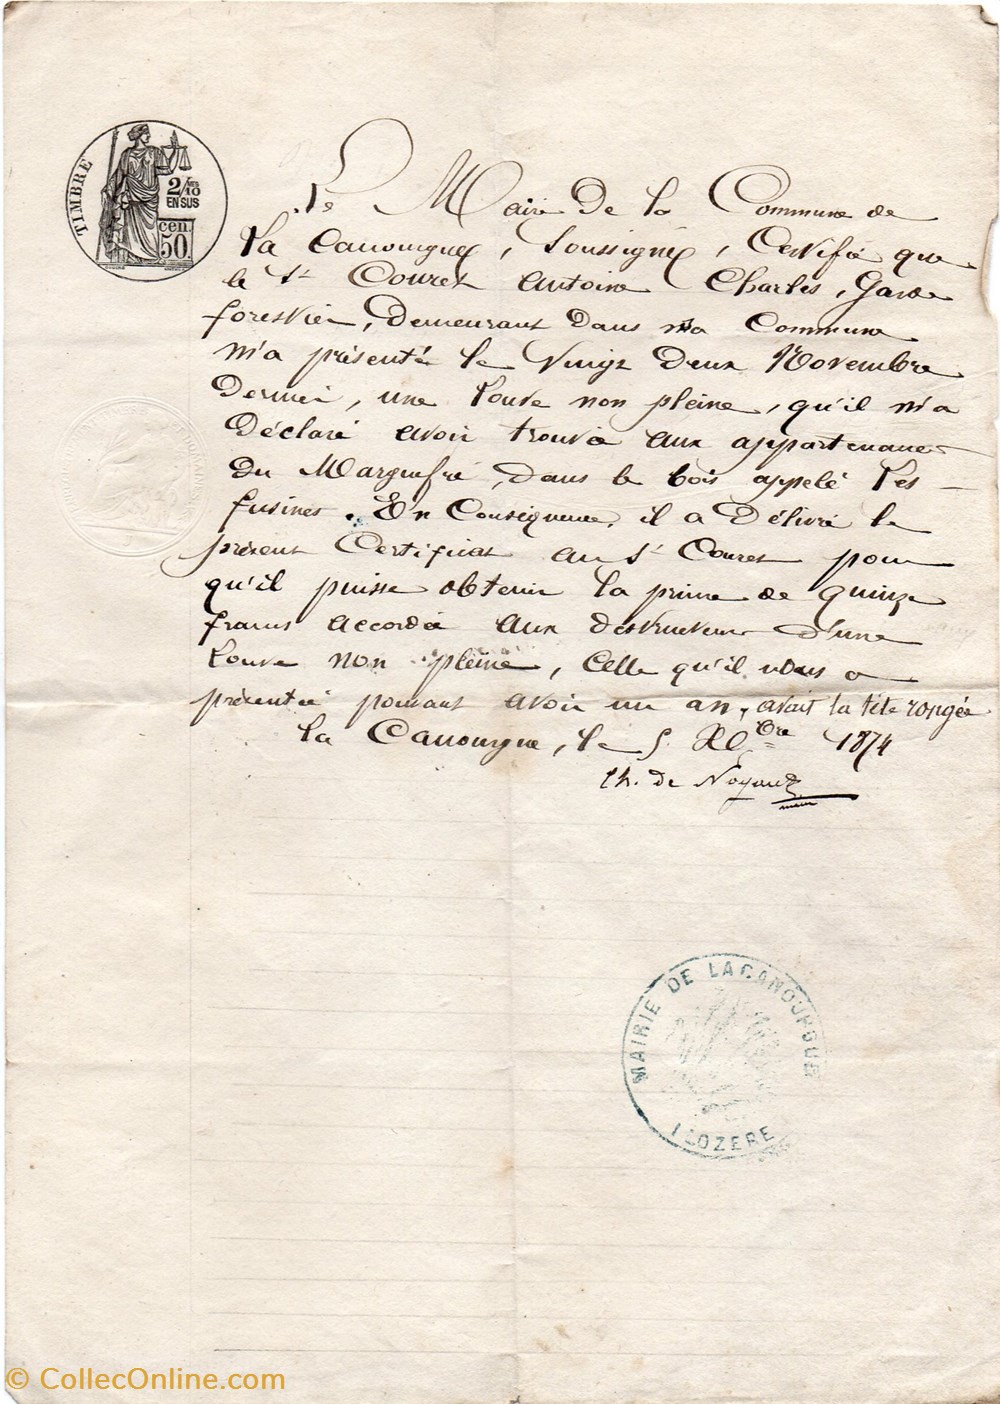 TIMBRE
2/10 EN SUS
cen.
50
Le Maire de la Commune de
La Canourgue, Soussigné, Certifie que
le Sr Couret Antoine Charles, Garde
forestier, demeurant dans ma Commune
m'a présenté le vingt deux Novembre
Dernier, une louve non pleine, qu'il m'a
Déclaré avoir trouvée aux appartenances
du, dans le bois appelé Les
fusines. En Conséquence, il a Délivré le
présent Certificat au Sr Couret pour
qu'il puisse obtenir la prime de quinze
francs accordée aux destructeurs d'une
louve non pleine, Celle qu'il nous a
présentée pouvant avoir un an, avait la tête rongée
la Canourgue, le 5 Xbre 1874
Ch. de
maire
MAIRIE DE LACANOURGUE
LOZERE
© CollecOnline.com